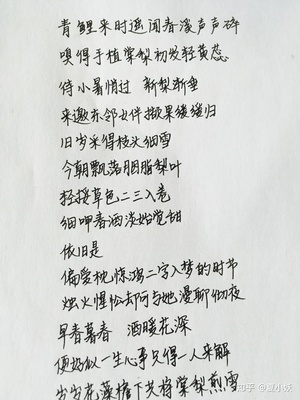 青鲤来时遥闻春溪声声碎
嗅得手植棠梨初发轻黄蕊
待小暑悄过 新梨渐垂
来邀东邻女伴撷果缓缓归
旧岁采得枝头细雪
今朝飘落胭脂梨叶
轻挼草色二三入卷
细呷春酒淡始觉甜
依旧是
偏爱枕惊鸿二字入梦的时节
烛火惺忪却可与她漫聊彻夜
早春暮春 酒暖花深
便好似一生心事只得一人来解
岁岁花藻檐下共将棠梨煎雪
知乎 @小妖